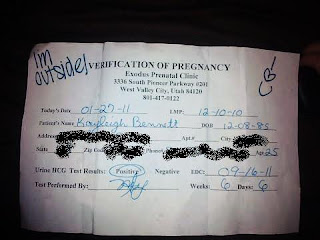 I'm
outside!
VERIFICATION OF PREGNANCY
Exodus Prenatal Clinic
3336 South Pioneer Parkway #201
West Valley City, Utah 84120
801-417-0122
Today's Date 01-27-11 LMP: 12-10-10
Patient's Name Kayleigh Bennett DOB 12-08-85
Address Apt.# City
State Zip Code Phone# 25
Urine HCG Test Results: Positive Negative EDC: 09-16-11
Test Performed By: Weeks: 6 Days: 6